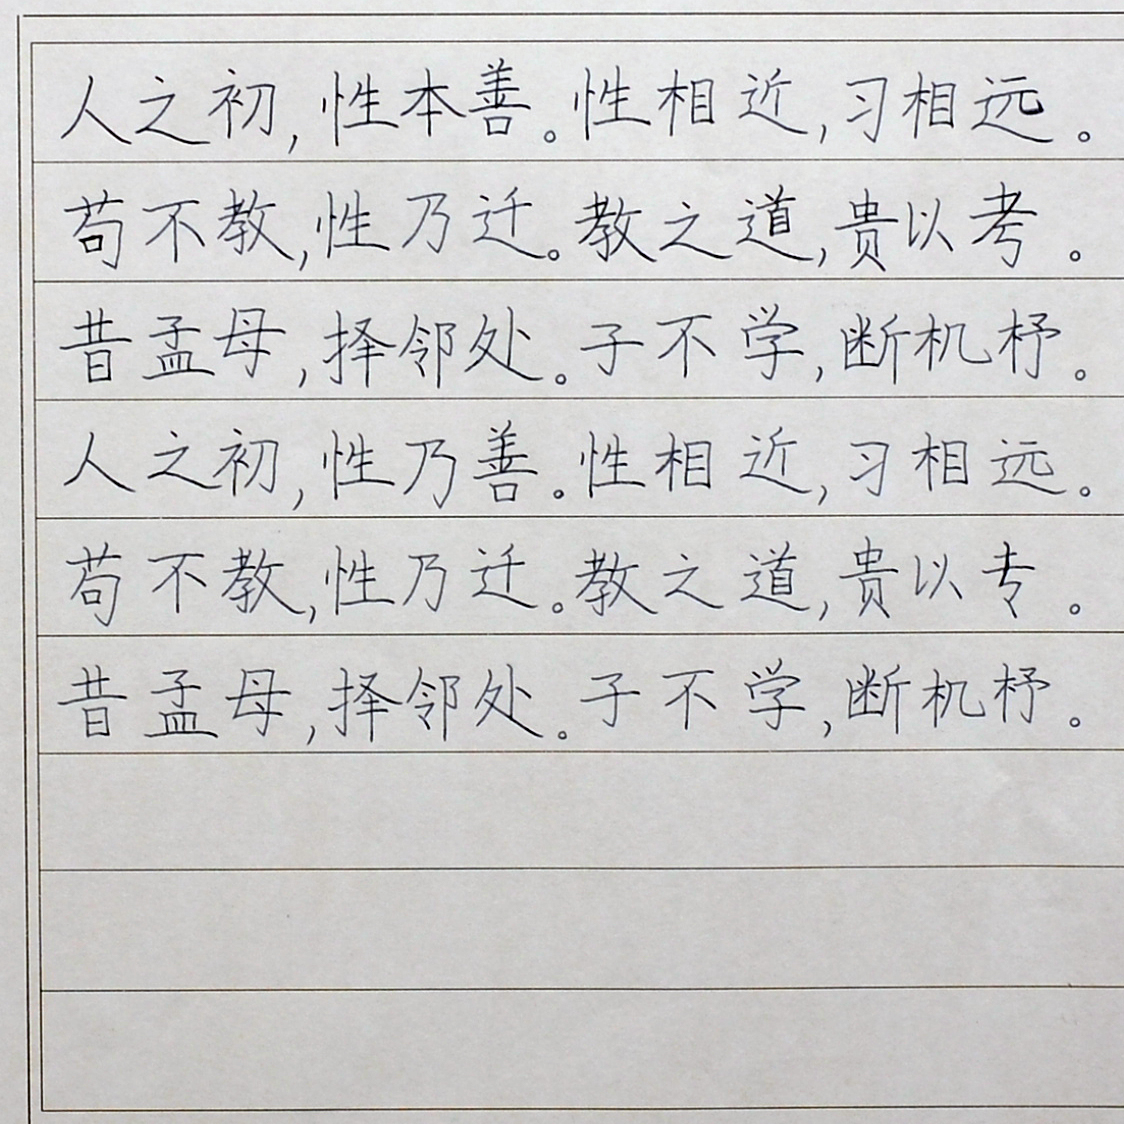 人之初,性本善。性相近,习相远。
苟不教,性乃迁。教之道,贵以考。
昔孟母,择邻处。子不学,断机杼。
人之初,性乃善。性相近,习相远。
苟不教,性乃迁。教之道,贵以专。
昔孟母,择邻处。子不学,断机杼。